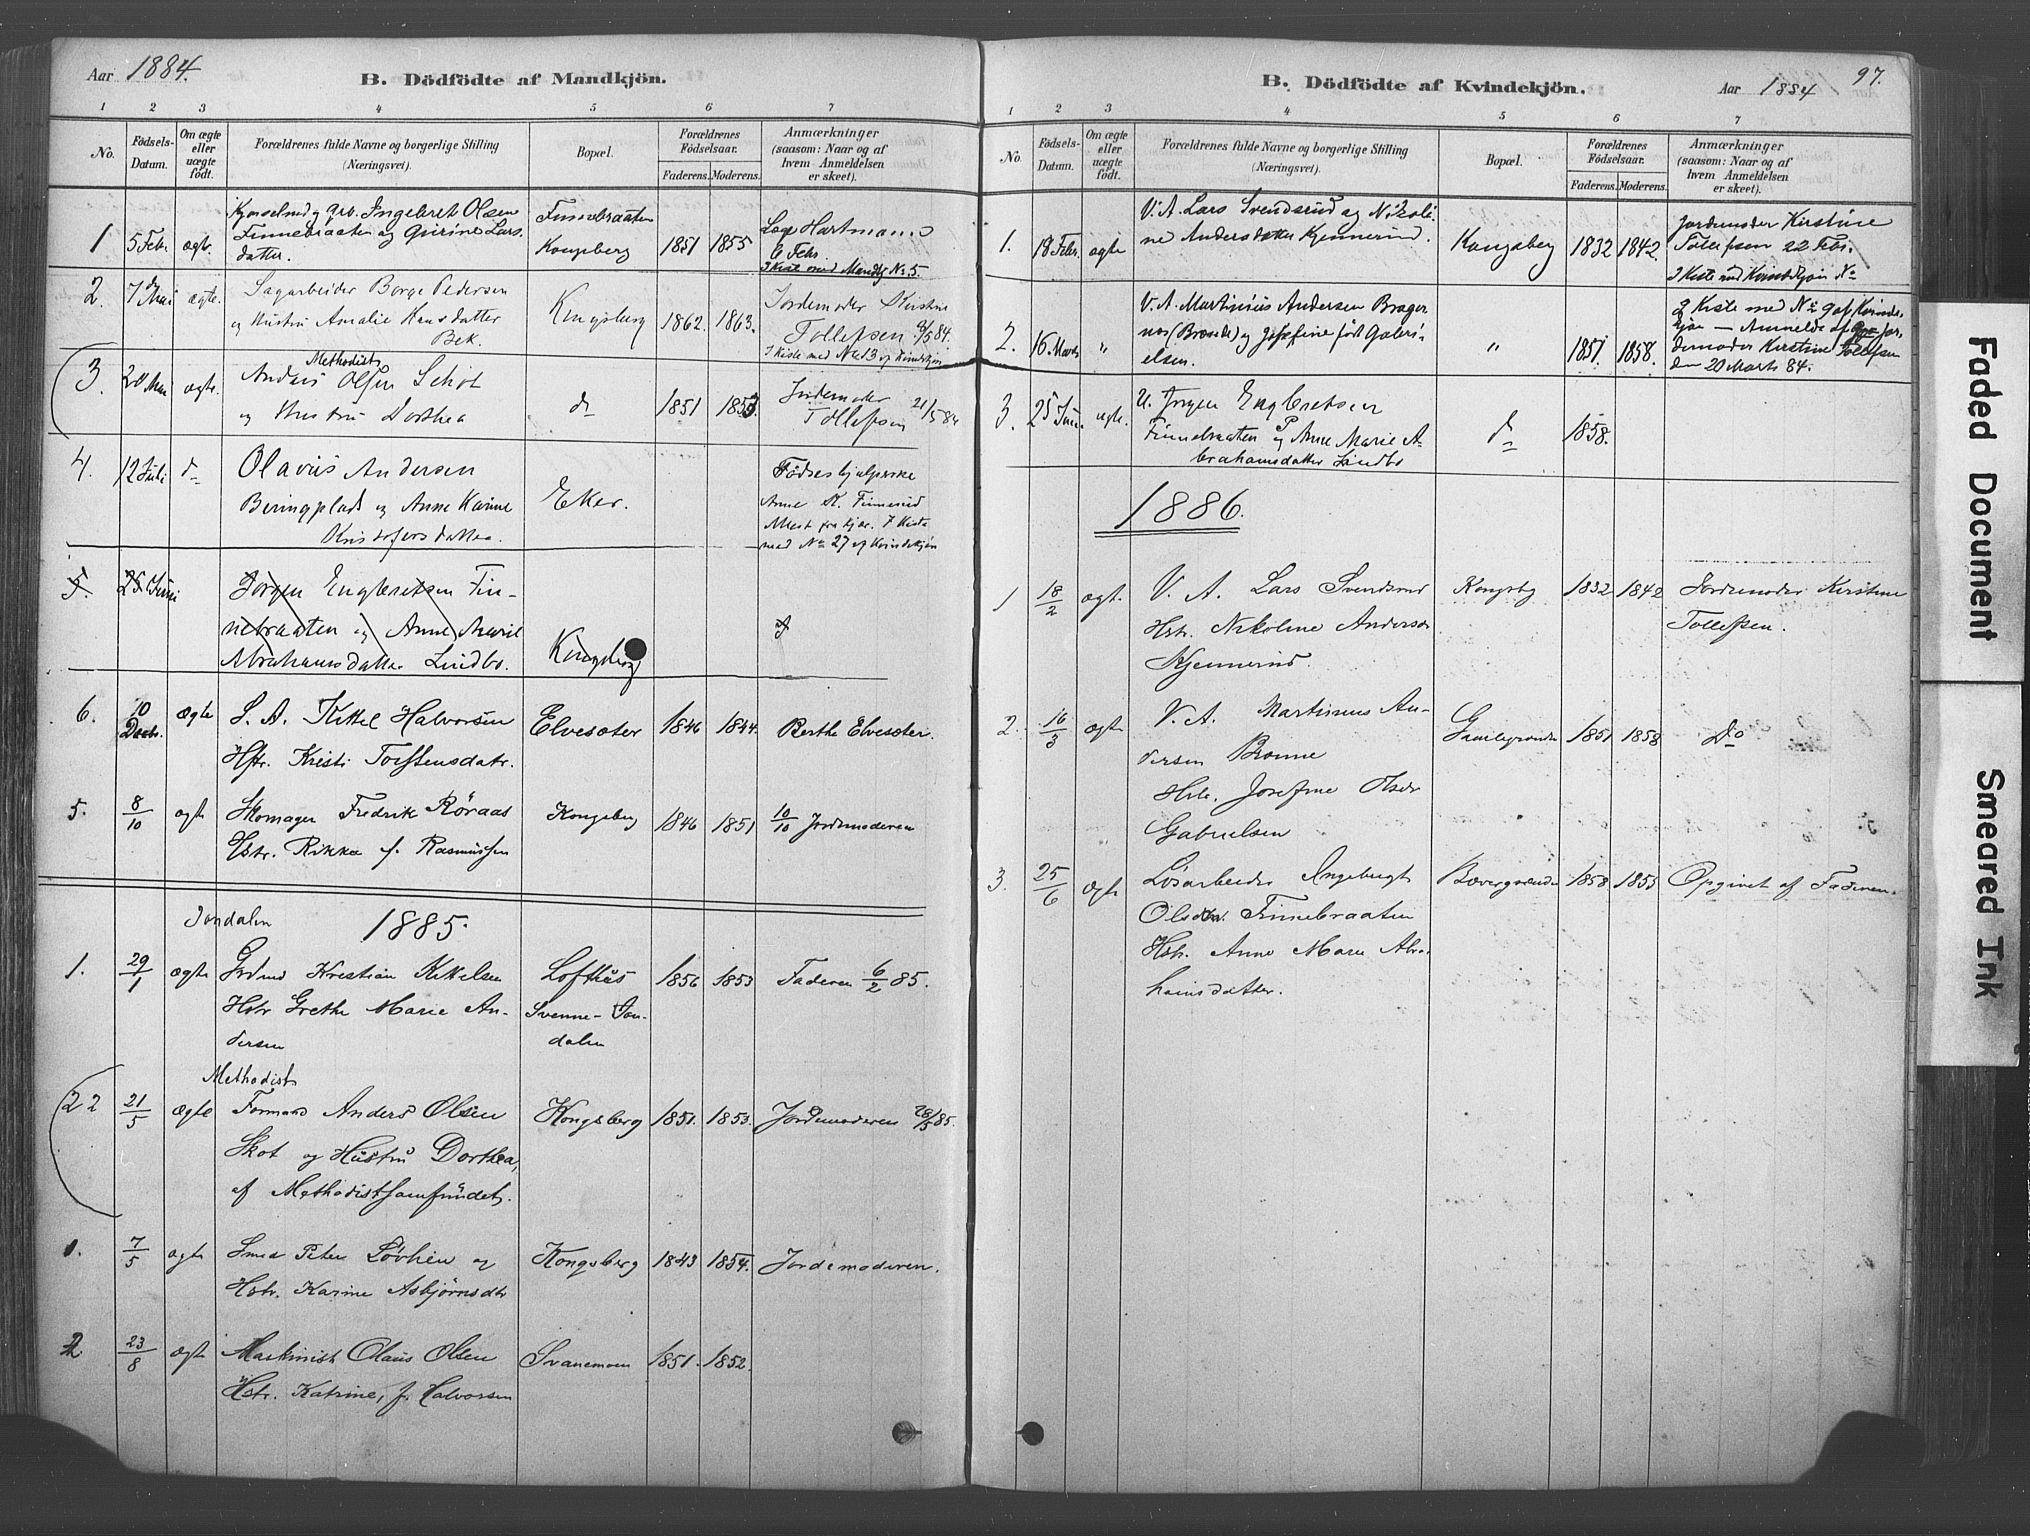 Aar 1884.
B. Dödfödte af Mandkjön.
1 2 3 4 5 6 7
No.
Födsels-
Datum.
Om ægte
eller
uægte
födt.
Forældrenes fulde Navne og borgerlige Stilling
(Næringsvei).
Bopæl.
Forældrenes
Födselsaar.
Faderens. Moderens.
Anmærkninger
(saasom: Naar og af
hvem Anmeldelsen
er skeet).
1 5 Febr ægte
og Grb. Ingebret Olsen
Finnebraaten og Gurine Lars-
datter.
Finnebraaten
Kongsberg
1851 1855
Hartmann
6 Febr
I Kiste med Mandkj No. 5.
2. 7 Mai ægte.
Sagarbeider Borge Pedersen
og Hustru Amalie Hansdatter
Bek.
Kongsberg
1862. 1863.
Jordemoder Kirstine
Tollefsen 8/5 84.
I Kiste med No 23 af Kvindekjøn
3. 20 Mai ægte.
Methodist
Anders Olsen Schot
og Hustru Dorthea
do
1851 1853.
Jordemoder
Tollefsen 21/5 84
4. 12 Juli do
Olavus Andersen
Beringplads og Anne Karine
Kristofersdatter.
Eker.
Fødselshjelperske
Anne K. Finnerud
I Kiste
med No 27 af Kvindekjøn
5. 25 Juni
Jørgen Engbretsen Fin-
nebraaten og Anne Marie
Abrahamsdatter Lindbo.
Kongsberg
6. 10 Decbr. ægte
S. A. Kittel Halvorsen
Hstr. Kristi Torstensdatr.
Elvesæter 1846 1844. Berthe Elvesæter.
5. 8/10 ægte
Skomager Fredrik Røraas
Hstr. Rikka f. Rasmussen
Kongsberg 1846 1851 10/10 Jordemoderen
Jondalen
1885.
1. 29/1 ægte
Grdmd Kristian Kittelsen
Hstr Grethe Marie An-
dersen
Lofthus
Svenne- Jon-
dalen
1856 1853 Faderen 6/2 85.
Methodist
22 21/5 ægte
Formand Anders Olsen
Skot og Hustru Dorthea,
af Methodistsamfundet.
Kongsberg 1851. 1853. Jordemoderen 28/5 85.
1. 7/5 ægte
Smed Peter Løvhen og
Hstr. Karine Asbjørnsdtr
Kongsberg 1843 1854. Jordemoderen.
2 23/8 ægte
Maskinist Olaus Olsen
Hstr. Katrine, f. Halvorsen
Svanemoen 1851. 1852.
B. Dödfödte af Kvindekjön.
Aar 1884
97.
1 2 3 4 5 6 7
No.
Födsels-
Datum.
Om ægte
eller
uægte
födt.
Forældrenes fulde Navne og borgerlige Stilling
(Næringsvei).
Bopæl.
Forældrenes
Födselsaar.
Faderens. Moderens.
Anmærkninger
(saasom: Naar og af
hvem Anmeldelsen
er skeet).
1. 18 Febr. ægte
V. A. Lars Svendsrud og Nikoli-
ne Andersdatter Kjennerud.
Kongsberg 1832 1842.
Jordemoder Kirstine
Tollefsen 22 Febr.
I Kiste med Kvindekjøn No
2. 16 Marts "
V. A. Martinius Andersen Brager-
næs (Brænde) og Josefine født Gabri-
elsen.
" 1851 1858.
I Kiste med No 9 af Kvinde-
kjøn — Anmeldt af Jor-
demoder Kirstine Tollefsen
den 20 Marts 84.
3. 25 Juni. ægte.
U. Jørgen Engbretsen
Finnebraaten og Anne Marie A-
brahamsdatter Lindbo
do 1858.
1886.
1 18/2 ægt.
V. A. Lars Svendsrud
Hstr. Nikoline Andersdr
Kjennerud.
Kongsbg 1832 1842
Jordemoder Kirstine
Tollefsen.
2. 16/3 ægte
V. A. Martinius An-
dersen Brænne
Hstr. Josefine Olsdr
Gabrielsen
1851 1858 Do
3. 25/6 ægte
Løsarbeider Ingebregt
Olsen Finnebraaten
Hstr. Anne Marie Abra-
hamsdatter.
Bævergrænden 1858 1855 Opgivet af Faderen.
Faded Document
Smeared Ink